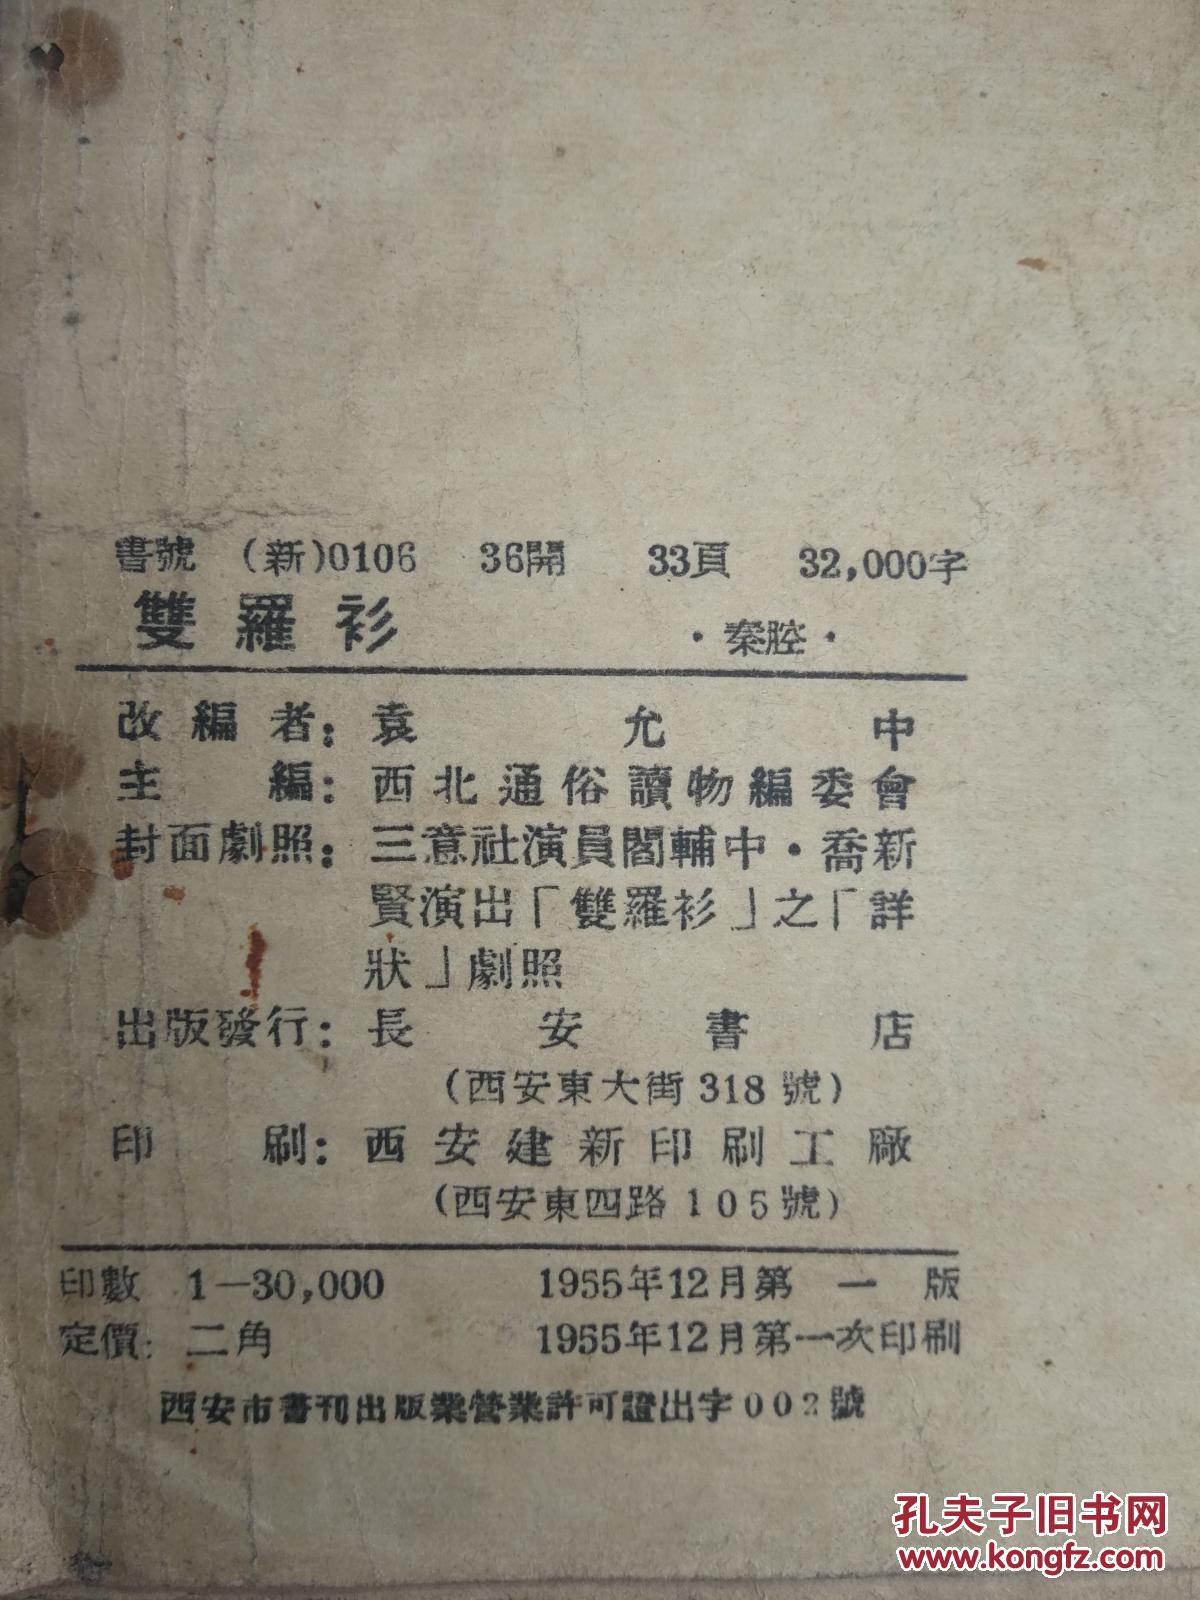 書號 (新)0106 36開 33頁 32,000字
雙羅衫 ·秦腔·
改編者：袁允中
主編：西北通俗讀物編委會
封面劇照：三意社演員閻輔中·喬新
賢演出「雙羅衫」之「詳
狀」劇照
出版發行：長安書店
(西安東大街318號)
印刷：西安建新印刷工廠
(西安東四路105號)
印數 1—30,000 1955年12月第一版
定價：二角 1955年12月第一次印刷
西安市書刊出版業營業許可證出字002號
孔夫子旧书网
www.kongfz.com